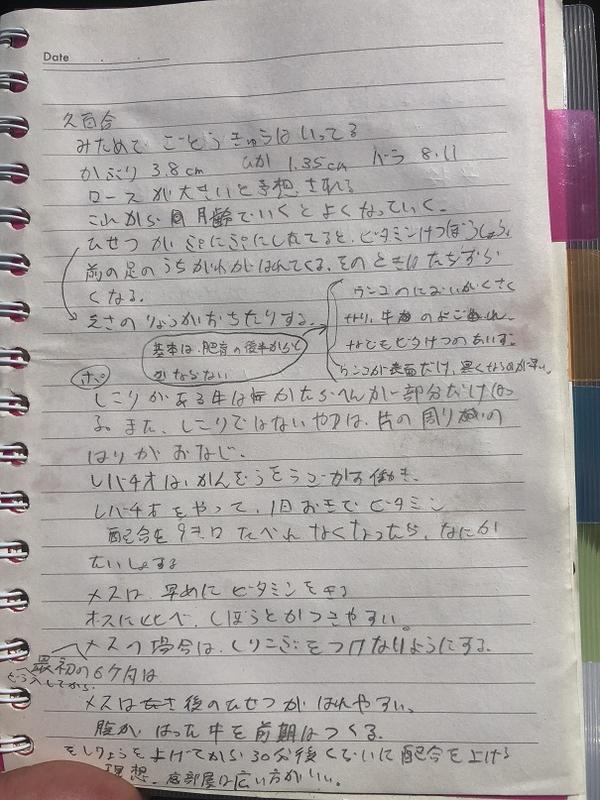 Date
久百合
みためで ごとうきゅうはいってる
かぶり 3.8cm ひか 1.35cm バラ 8.11
ロースが大きいと予想される
これから 月齢でいくとよくなっていく。
ひせつがぷにぷにしたてると、ビタミンけつぼうしょう。
前の足のうちがわがはれてくる。そのときはたちずら
くなる。
えさのりょうがおちたりする。
基本は、肥育の後半からと
かならない
ウンコのにおいがくさく
なり、牛のよごれ
などもビタけつのあいず。
ウンコが表面だけ、黒くなるのが早い。
しこりがある牛は かたらへんが一部分だけはっ
る。また、しこりではないやつは、片の周りの
はりがおなじ。
レバチオは、かんぞうをうごかす働き。
レバチオをやって、1日おきでビタミン
配合を9キロたべれなくなったら、なにか
たいしょする
メスは、早めにビタミンをきる
オスに比べ、しぼうとかつきやすい。
メスの場合は、しりこぶをつけないようにする。
最初の6ケ月は
どう入してから
メスは 後のひせつがはれやすい。
腹がはった牛を前期はつくる。
そしりょうを上げてから30分後くらいに配合を上げる
理想。 部屋は広い方がいい。